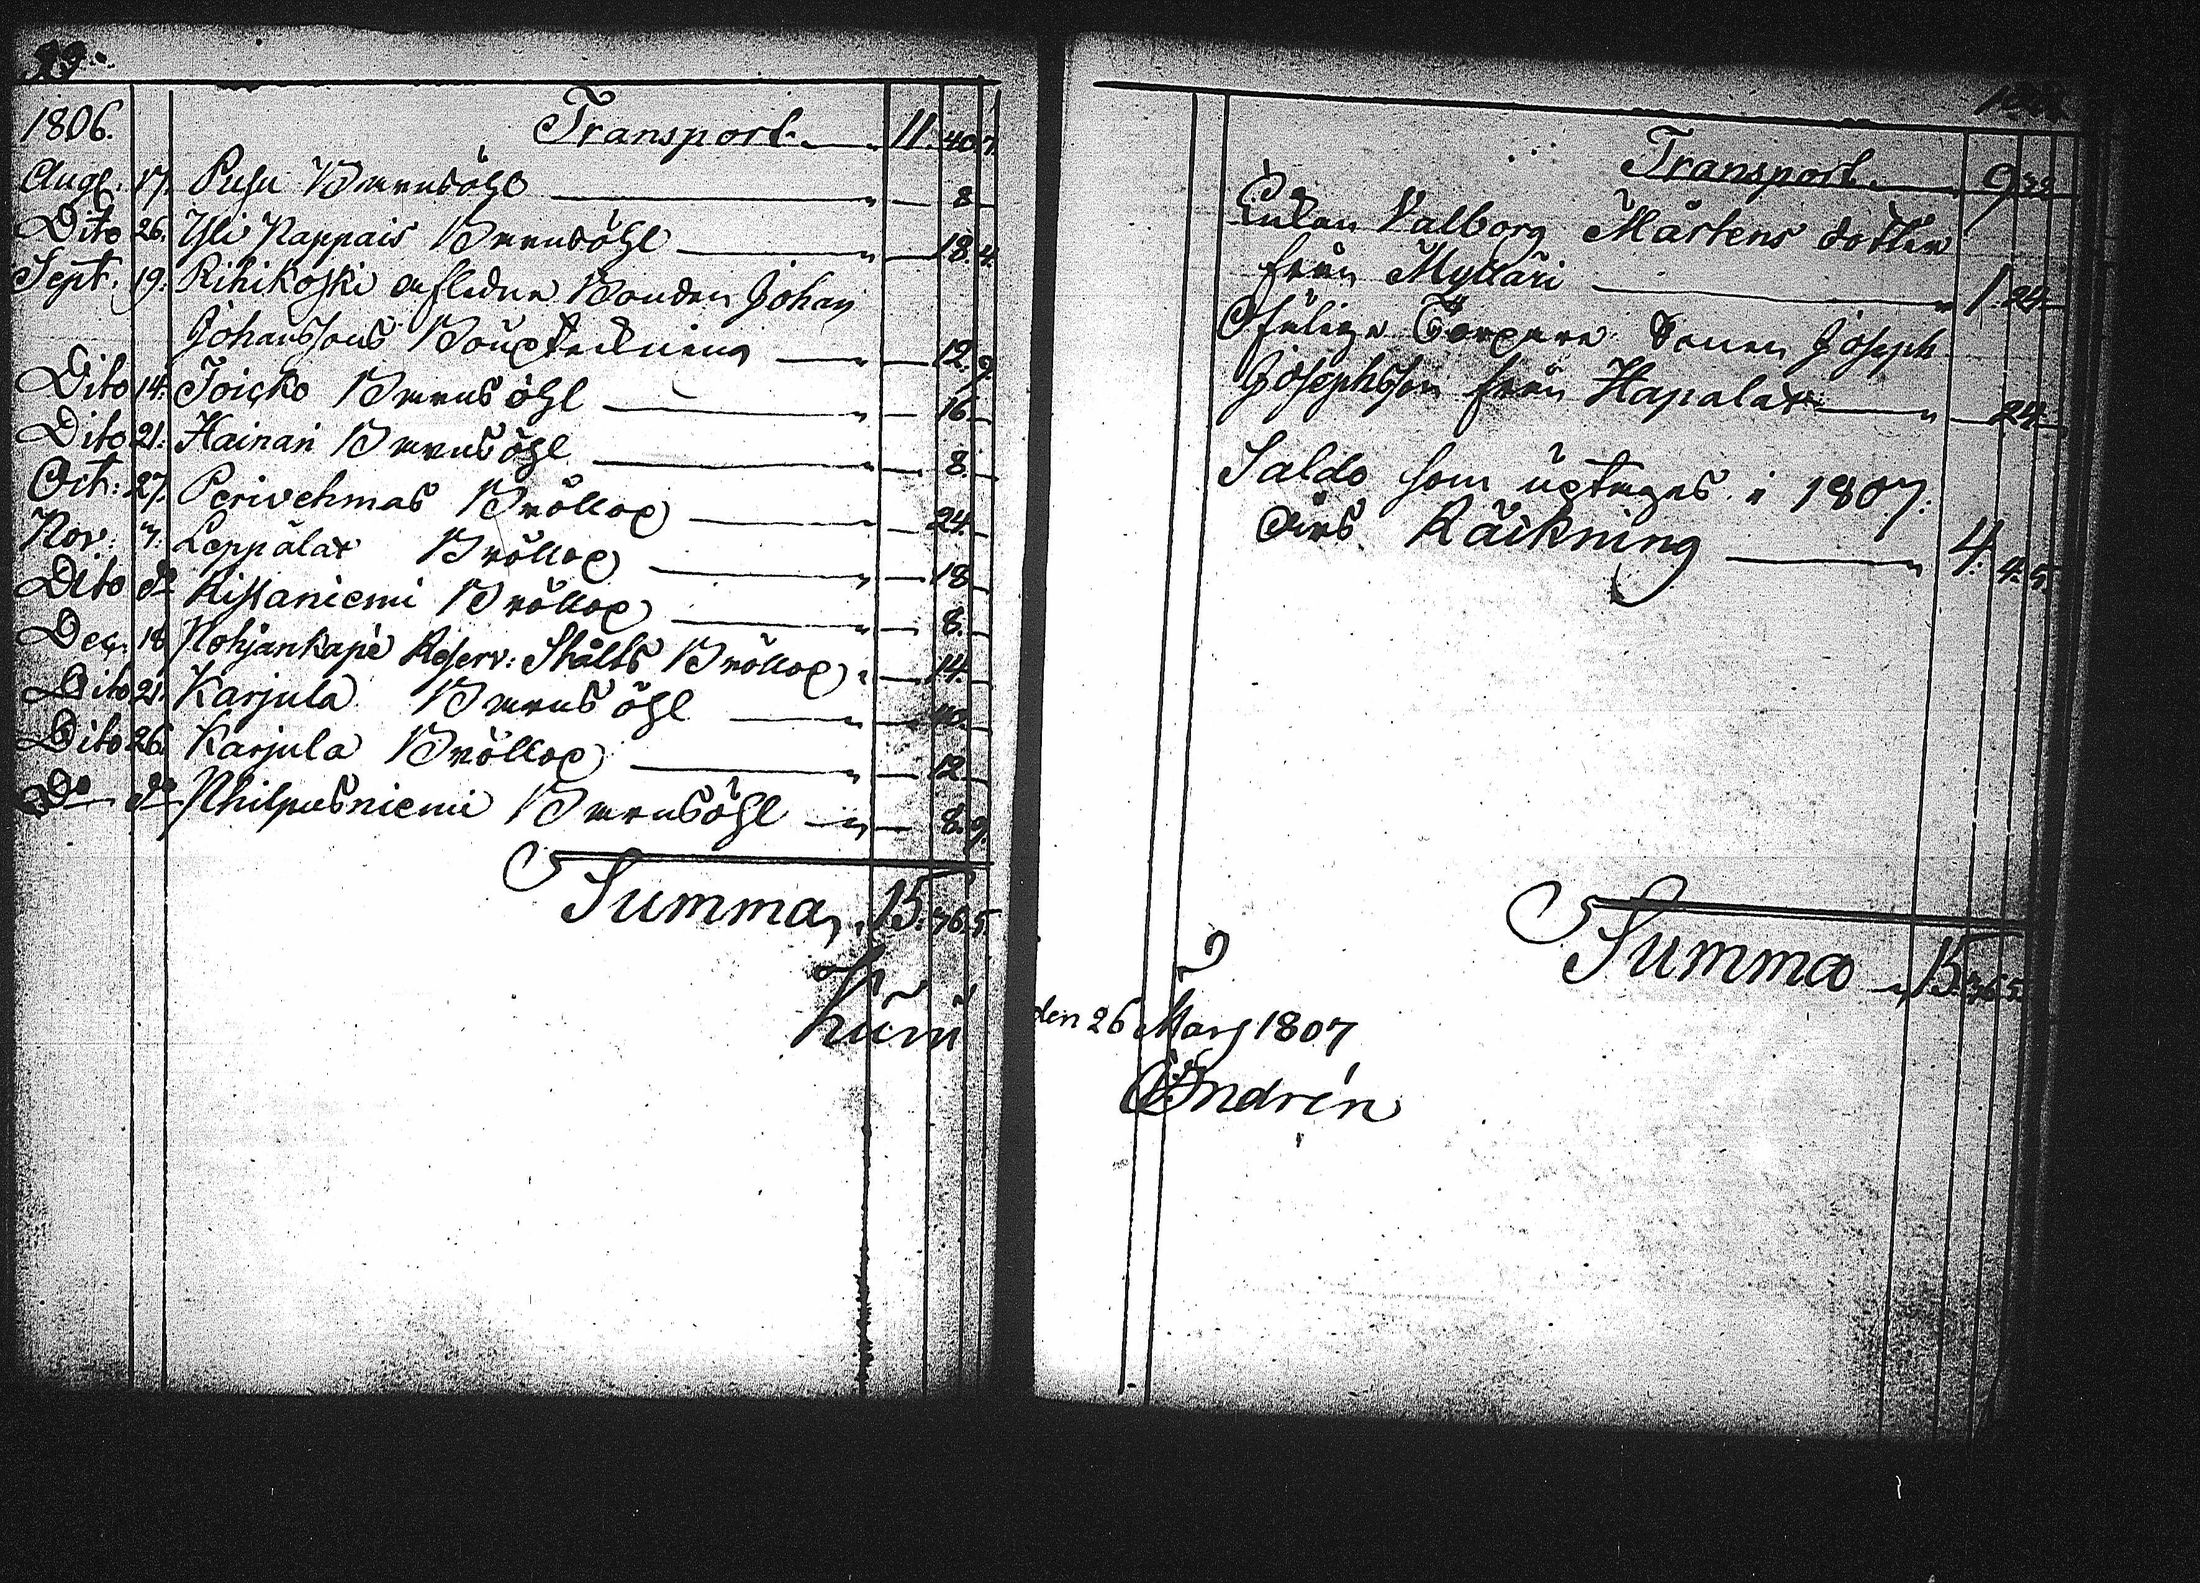 1806. Transport 11. 40. 7.
Aug: 17. Pusu Barnsöhl 8
Dito 26. Yli Nappais Barnsöhl 18. 4.
Sept: 19. Rihikoski aflidne Bonden Johan
Johanssons Boupteckning 12. 9.
Dito 14. Joicko Barnsöhl 16
Dito 21. Hainari Barnsöhl 8.
Oct: 27. Perivehmas Bröllop 24.
Nov: 7. Leppälax Bröllop 18
Dito do Rissaniemi Bröllop 8.
Dec. 18 Nohjankapé Reserv: Stålts Bröllop 14.
Dito 21. Karjula Barnsöhl 10.
Dito 26. Karjula Bröllop 12
Do do Philpusniemi Barnsöhl 8. 9.
Summa 15. 36. 5.
Transport 9 32
Enkan Valborg Mårtens dotter
från Mylläri 1. 24.
Ofälige Torpare Sonen Joseph
Josephsson från Hapalax 24.
Saldo som uptages i 1807.
års Räickning 4. 4. 5.
Summa 15. 36. 5.
den 26 Mars 1807